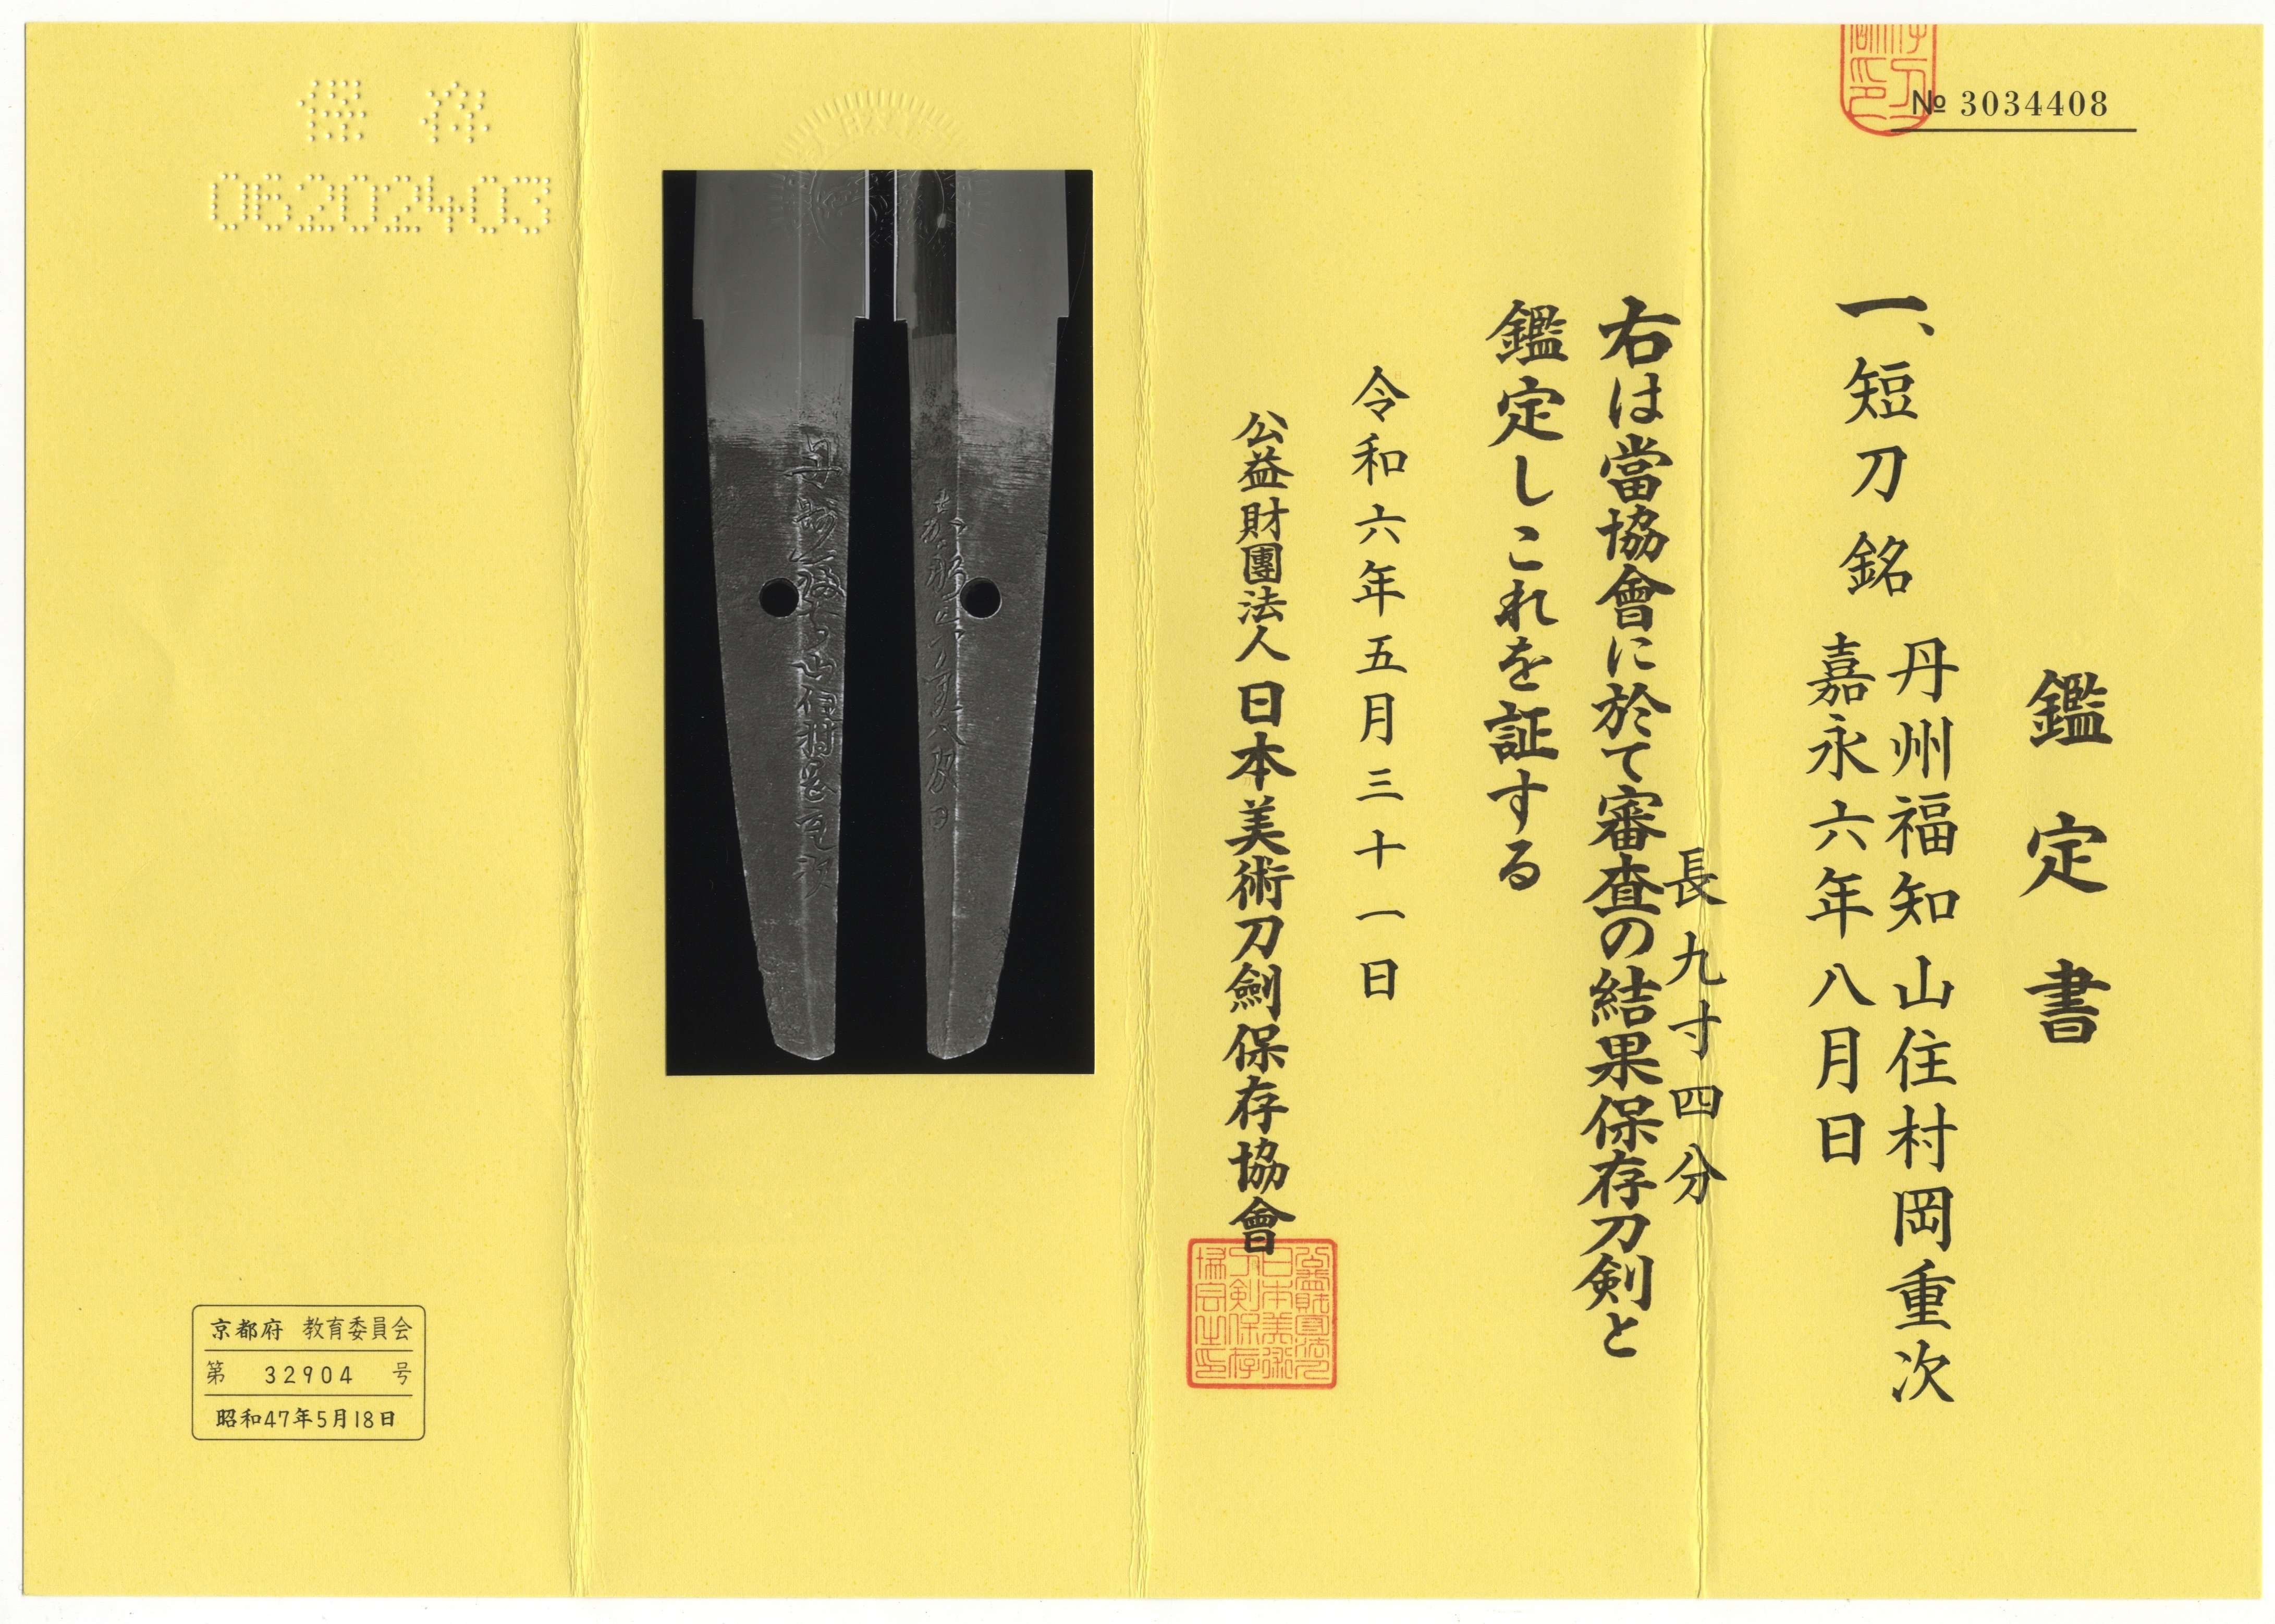 № 3034408
鑑定書
一、短刀 銘 丹州福知山住村岡重次
嘉永六年八月日
長九寸四分
右は當協會に於て審査の結果保存刀剣と
鑑定しこれを証する
令和六年五月三十一日
公益財團法人 日本美術刀劍保存協會
丹州福知山住村岡重次
嘉永六年八月日
保存
06202403
京都府 教育委員会
第 32904 号
昭和47年5月18日